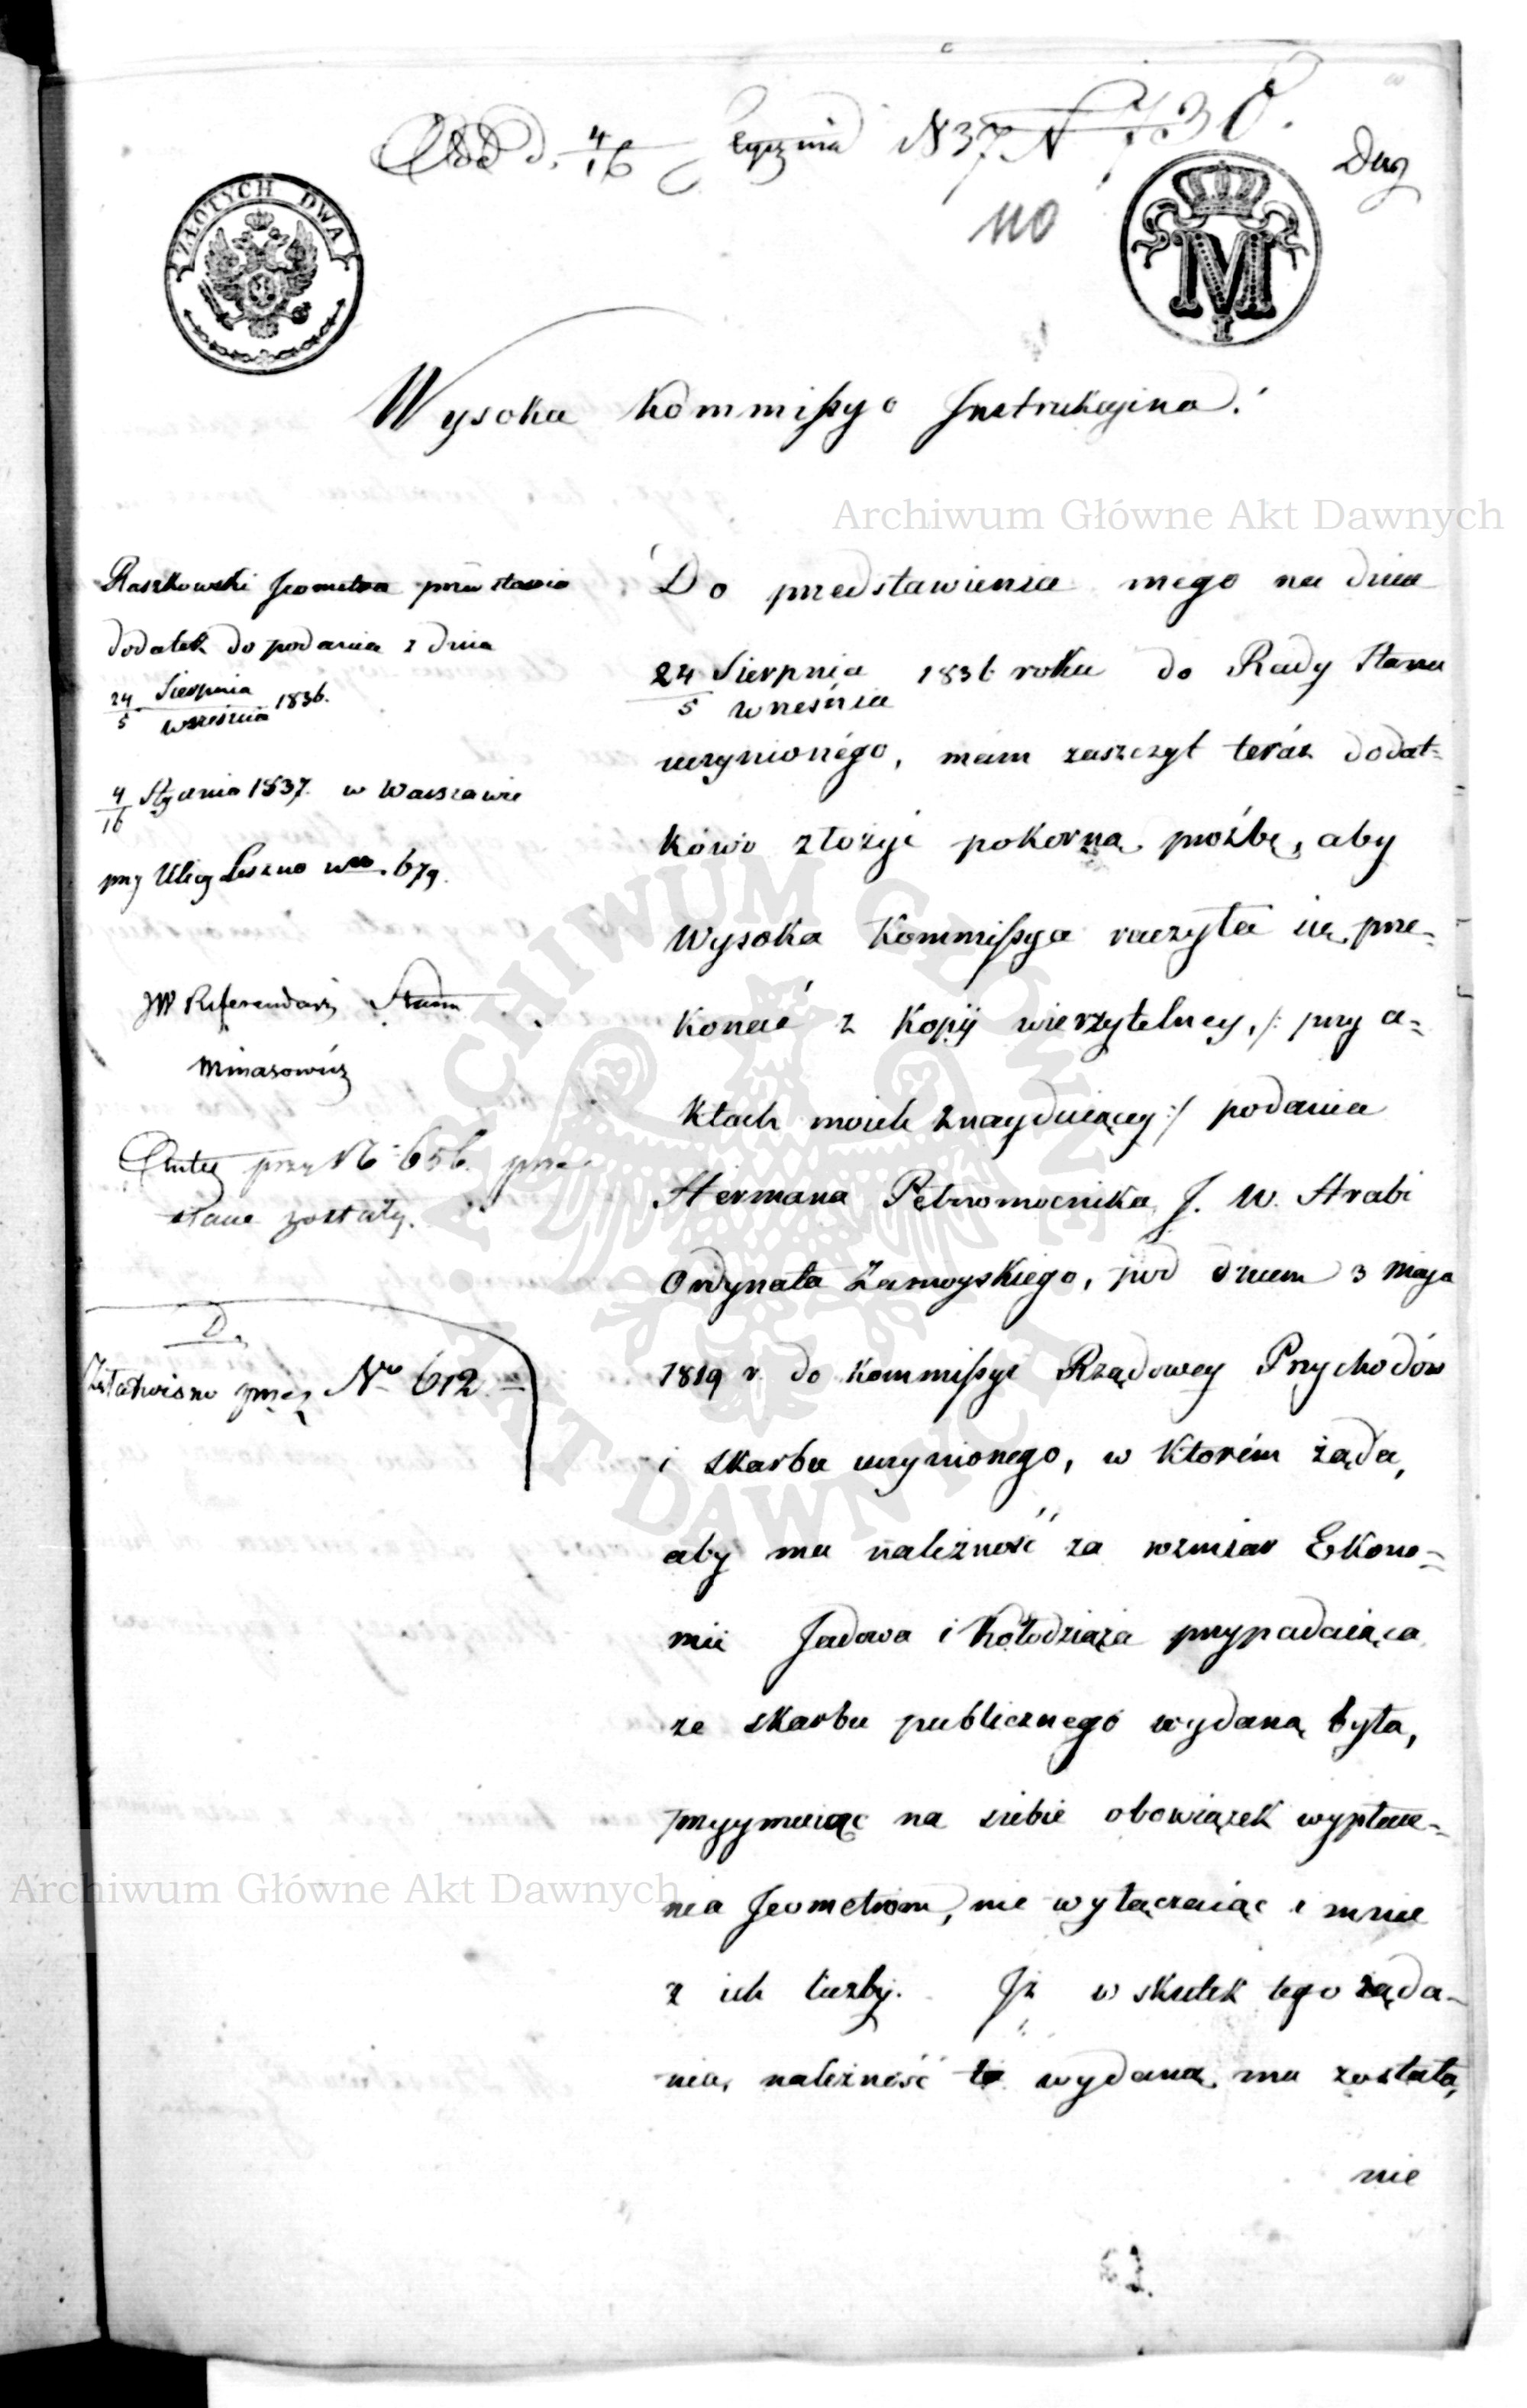 Odd d. 4/16 Stycznia N 37 N 730.
Dug
110
ZŁOTYCH DWA
M I
Wysoka Kommissyo Instrukcyina!
Archiwum Główne Akt Dawnych
Raszkowski Jeometra przedstawia
dodatek do podania z dnia
24/5 Sierpnia/Września 1836.
4/16 Stycznia 1837. w Warszawie
przy Ulicy Leszno Nro 679.
JW Referendarz Stanu
Minasowicz
Akta przy N 656. prze
słane zostały.
D.
Załatwiono przez No 612.
Do przedstawienia mego na dniu
24/5 Sierpnia/Września 1836 roku do Rady Stanu
uczynionégo, mam zaszczyt teráz dodat=
kowo złożyć pokorną prośbę, aby
Wysoka Kommissya raczyła się prze=
konać z Kopij wierzytelney, /: przy a=
ktach moich znayduiącey :/ podania
Hermana Pełnomocnika J. W. Hrabi
Ordynata Zamoyskiego, pod dniem 3 Maja
1819 r. do Kommissyi Rządowey Przychodów
i Skarbu uczynionego, w którém żąda,
aby mu należność za rozmiar Ekono=
mii Jadowa i Kołodziąża przypadaiąca
ze Skarbu publicznego wydaną była,
przyymuiąc na siebie obowiązek wypłace=
nia Jeometrom, nie wyłączaiąc i mnie
z ich liczby. Iż w skutek tego żąda=
nia, należność ta wydaną mu została,
nie
Archiwum Główne Akt Dawnych
ARCHIWUM GŁÓWNE AKT DAWNYCH